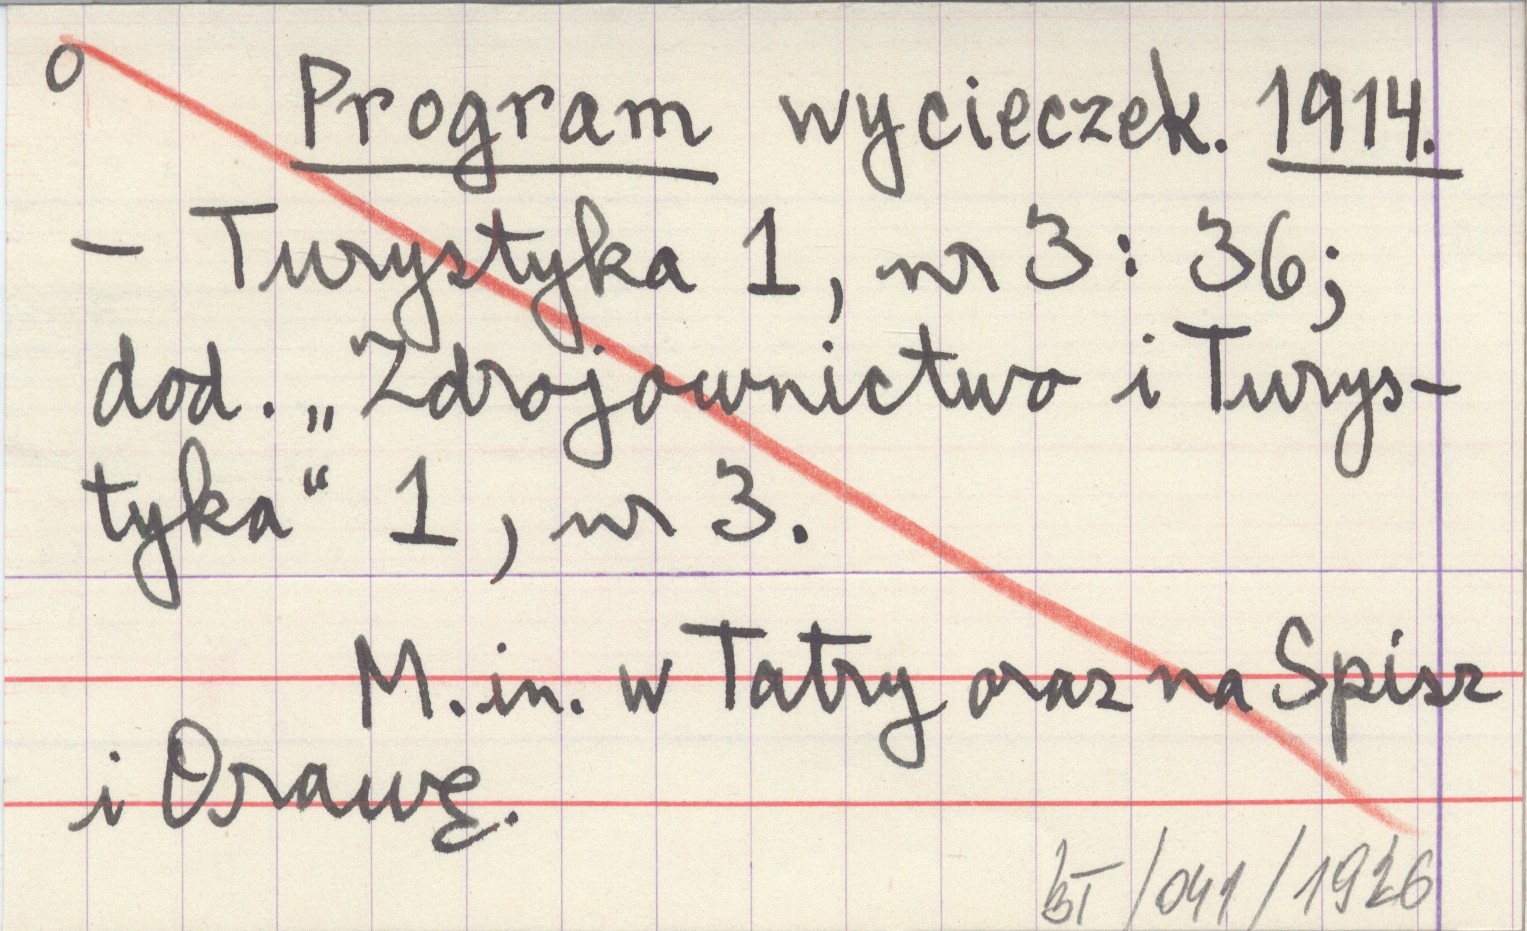 o Program wycieczek. 1914.
– Turystyka 1, nr 3 : 36;
dod. „Zdrojownictwo i Turys-
tyka“ 1, nr 3.
M. in. w Tatry oraz na Spisz
i Orawę.
BT/041/1926